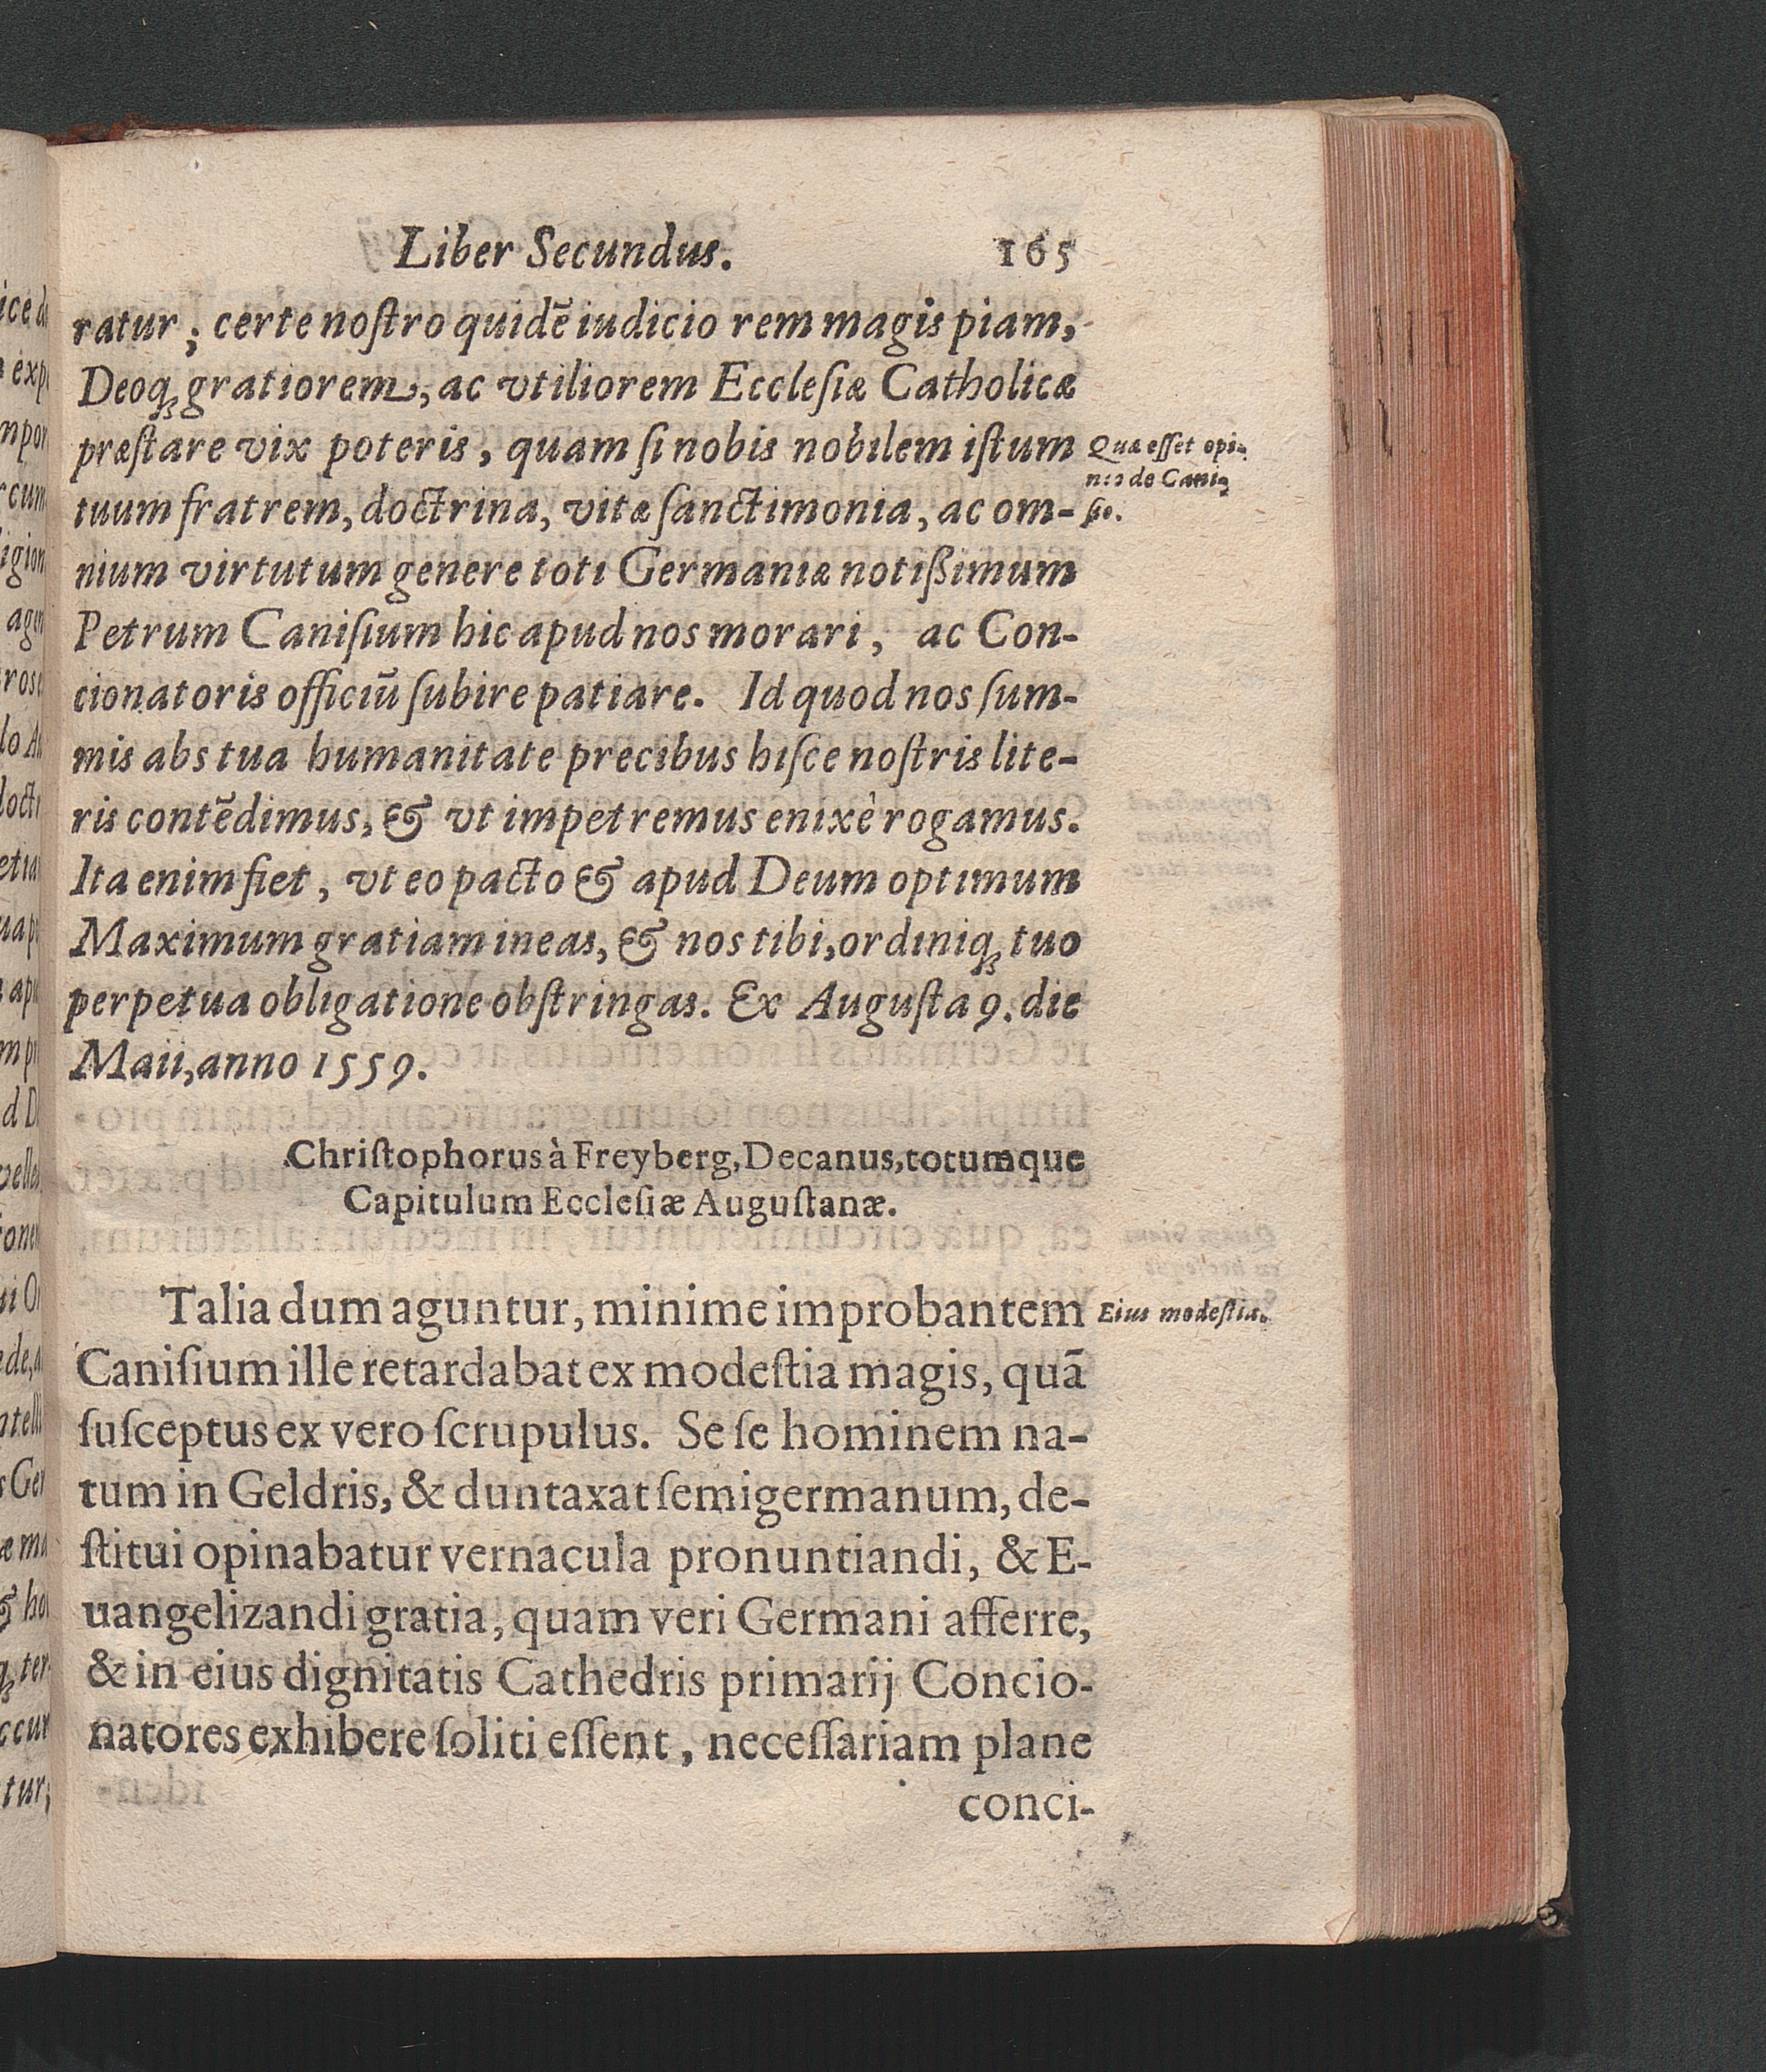 Liber Secundus. 165
ratur; certe noſtro quidē iudicio rem magis piam,
Deoq́ꝫ gratiorem, ac vtiliorem Eccleſiæ Catholicæ
præſtare vix poteris, quam ſi nobis nobilem iſtum
tuum fratrem, doctrina, vitæ ſanctimonia, ac om-
nium virtutum genere toti Germaniæ notißimum
Petrum Caniſium hic apud nos morari, ac Con-
cionatoris officiū ſubire patiare. Id quod nos ſum-
mis abs tua humanitate precibus hiſce noſtris lite-
ris contēdimus, & vt impetremus enixè rogamus.
Ita enim fiet, vt eo pacto & apud Deum optimum
Maximum gratiam ineas, & nos tibi, ordiniqꝫ tuo
perpetua obligatione obſtringas. Ex Auguſta 9. die
Maii, anno 1559.
Chriſtophorus à Freyberg, Decanus, totumque
Capitulum Eccleſiæ Auguſtanæ.
Talia dum aguntur, minime improbantem
Caniſium ille retardabat ex modeſtia magis, quā
ſuſceptus ex vero ſcrupulus. Se ſe hominem na-
tum in Geldris, & duntaxat ſemigermanum, de-
ſtitui opinabatur vernacula pronuntiandi, & E-
uangelizandi gratia, quam veri Germani afferre,
& in eius dignitatis Cathedris primarij Concio-
natores exhibere ſoliti eſſent, neceſſariam plane
conci-
Quæ eſſet opi-
nio de Cani-
ſio.
Eius modeſtia.